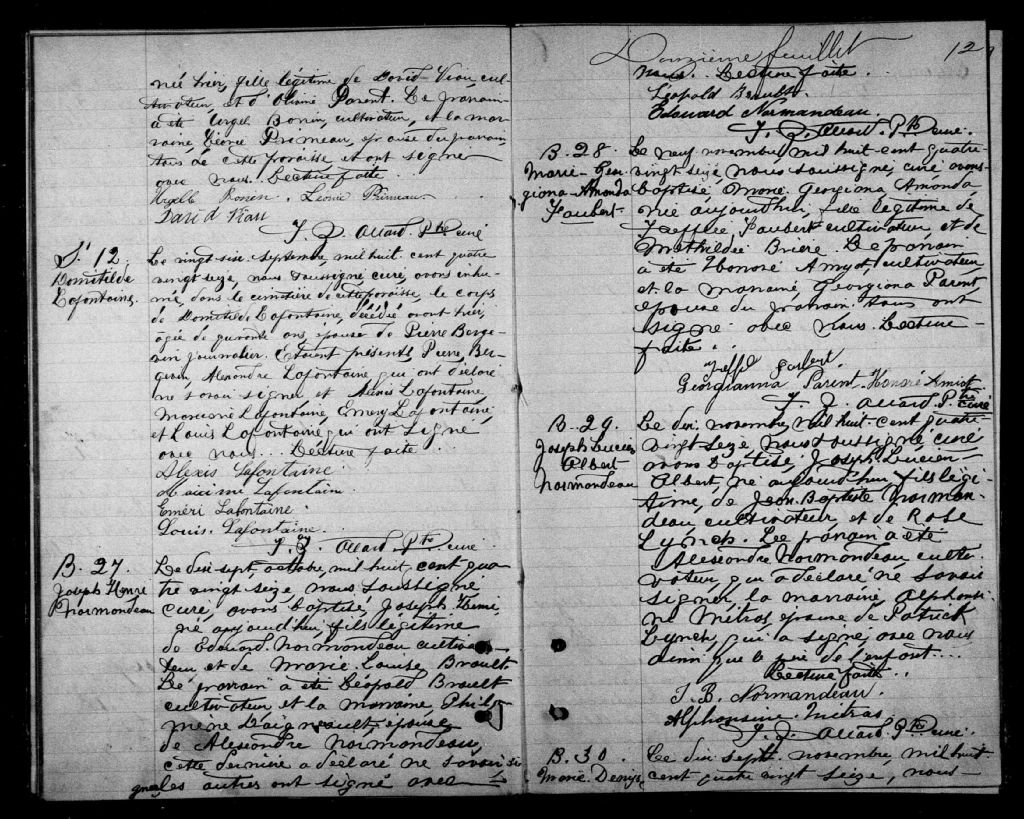 née hier, fille légitime de David Viau cul-
tivateur, et d'Olivine Parent. Le parrain
a été Urgel Bonin, cultivateur, et la mar-
raine, Léonie Primeau, épouse du parrain
tous de cette paroisse et ont signé
avec nous. Lecture faite.
Urgelle Bonin. Léonie Primeau
David Viau
F. Z. Allard. Ptre curé
S. 12.
Domitilde
Lafontaine.
Le vingt-six septembre mil huit-cent quatre
vingt-seize, nous soussigné curé, avons inhu-
mé, dans le cimetière de cette paroisse, le corps
de Domitilde Lafontaine, décédée avant hier,
agée de quarante ans, épouse de Pierre Berge-
vin journalier. Etaient présents Pierre, Ber-
gevin, Alexandre Lafontaine qui ont déclaré
ne savoir signer et Alexis Lafontaine
Maxime Lafontaine, Emery Lafontaine,
et Louis Lafontaine qui ont signé
avec nous... Lecture faite
Alexis Lafontaine
Maxime Lafontaine
Eméri Lafontaine
Louis. Lafontaine.
F. Z. Allard. Ptre curé
B. 27.
Joseph Henri
Normandeau
Le dix-sept, octobre, mil huit cent qua-
tre vingt seize nous soussigné
curé, avons baptisé, Joseph Henri
né aujourd'hui, fils légitime
de Edouard Normandeau cultiva-
teur et de Marie-Louise Brault
Le parrain a été Léopold Brault
cultivateur et la marraine, Philo-
mène Daigneault, épouse
de Alexandre Normandeau,
cette dernière a déclaré ne savoir si-
gner les autres ont signé avec
Douzième feuillet
12
nous. Lecture faite.
Léopold Brault.
Edouard Normandeau.
F. Z. Allard. Ptre curé.
B. 28.
Marie-Geor
giona-Amanda
Faubert
Le neuf novembre mil huit-cent quatre-
vingt seize nous soussigné, curé avons
baptisé Marie Georgiona Amonda
née aujourd'hui, fille légitime de
Jeffrée Faubert cultivateur et de
Mathildée Brière. Le parrain
a été Honoré Amyot, cultivateur
et la marraine Georgiona Parent
épouse du parrain. Tous ont
signé avec nous. Lecture
faite..
Jeffré Faubert
Georgianna Parent. Honoré Amiot
F. Z. Allard. Ptre curé
B. 29.
Joseph Lucien
Albert
Normandeau
Le dix novembre, mil huit-cent quatre
vingt-seize nous soussigné, curé
avons baptisé, Joseph-Lucien-
Albert, né aujourd'hui, fils légi-
time, de Jean-Baptiste Norman-
deau cultivateur, et de Rose
Lynch. Le parrain a été
Alexandre Normandeau, culti-
vateur, qui a déclaré ne savoir
signer la marraine, Alphonsi-
ne Mitras, épouse de Patrick
Lynch, qui a signé, avec nous
ainsi que le père de l'enfant...
Lecture faite..
J. B. Normandeau.
Alphonsine Mitras
F. Z. Allard. Ptre curé.
B. 30.
Marie Denyse
Le dix sept novembre, mil huit
cent quatre vingt seize, nous-